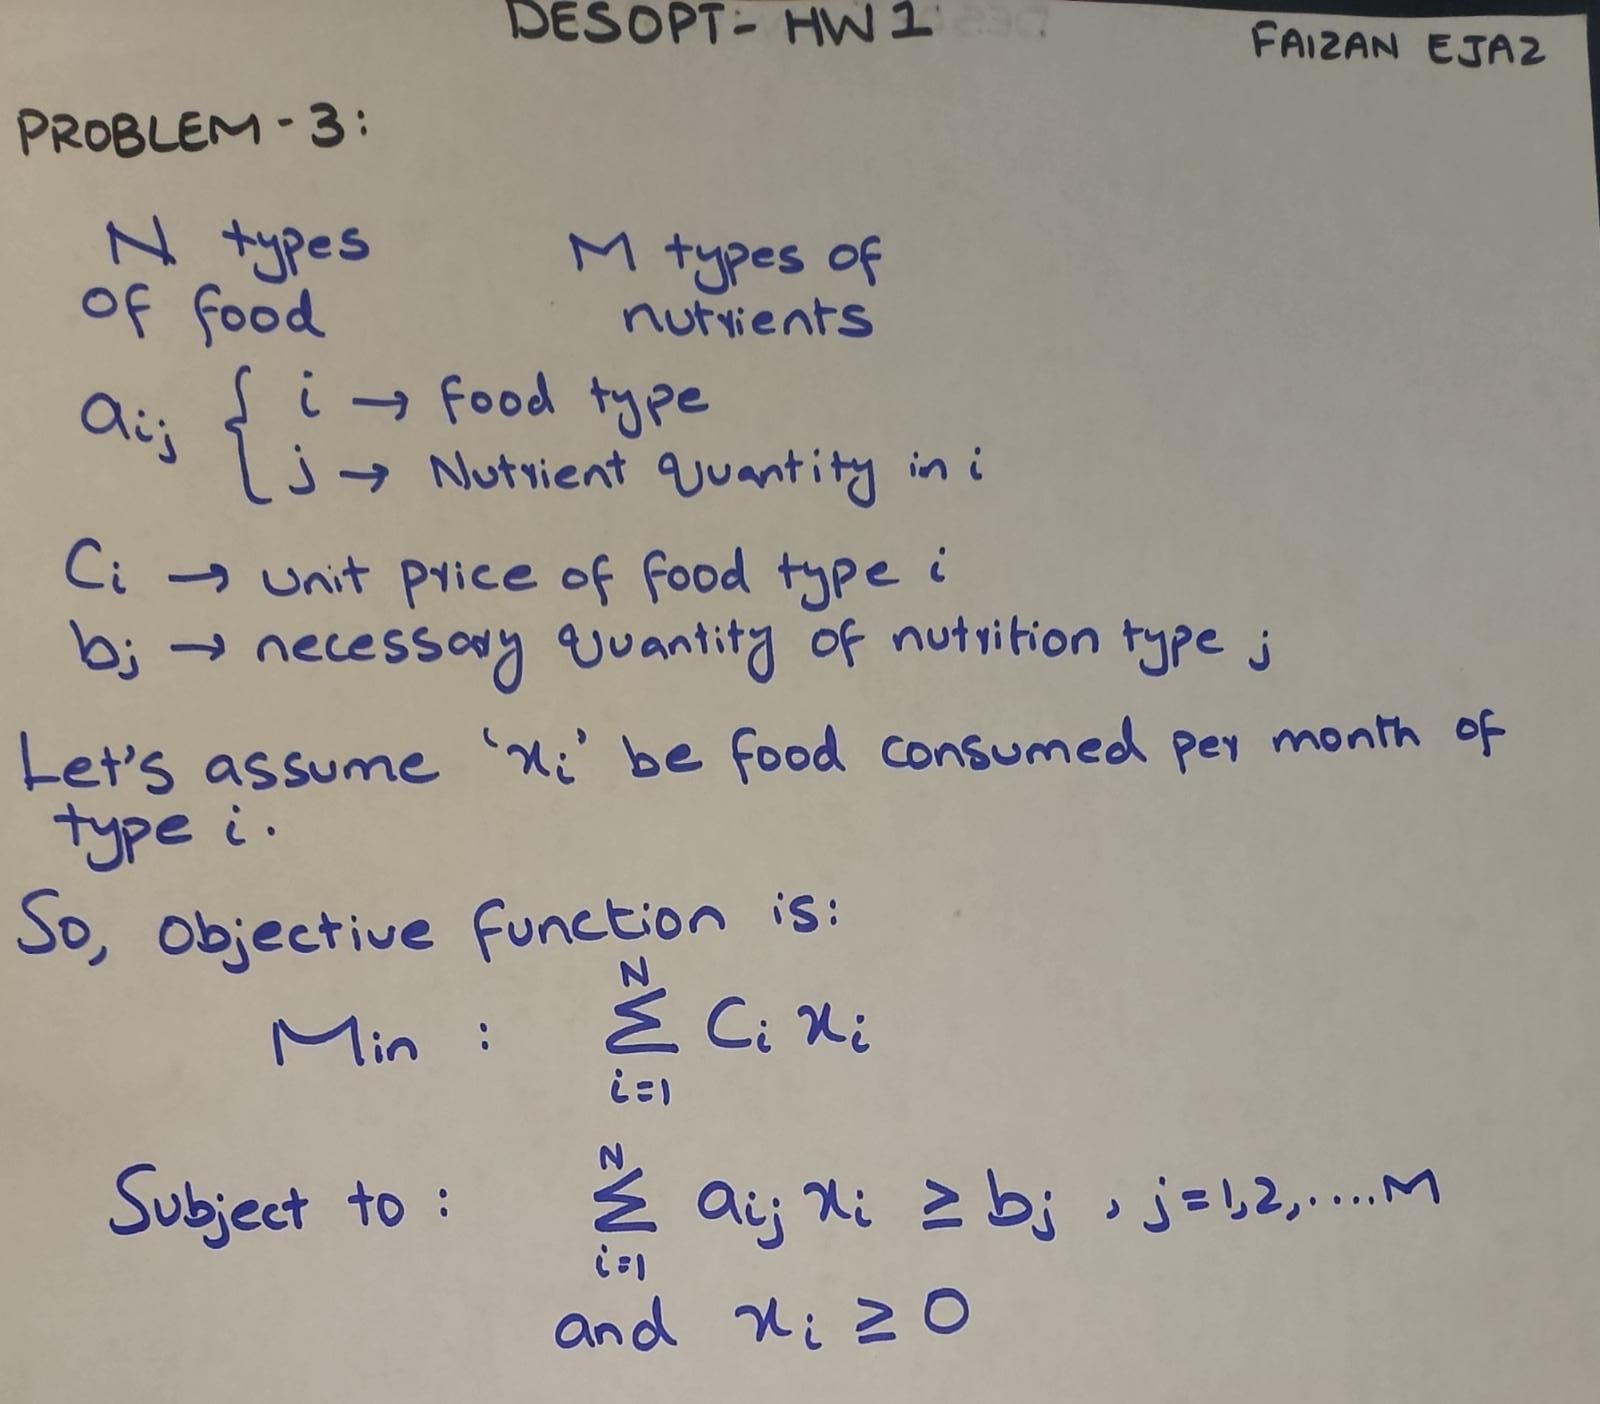 DESOPT- HW 1
FAIZAN EJAZ
PROBLEM - 3:
N types
of food
M types of
nutrients
aij { i → food type
j → Nutrient quantity in i
Ci → unit price of food type i
bj → necessary quantity of nutrition type j
Let's assume 'xi' be food consumed per month of
type i.
So, objective function is:
Min : N ∑ i=1 Ci xi
Subject to : N ∑ i=1 aij xi ≥ bj , j=1,2,.....M
and xi ≥ 0